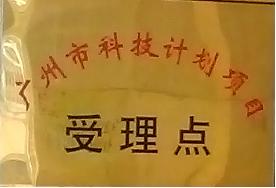 广州市科技计划项目
受理点